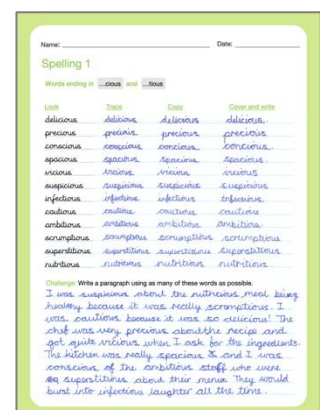 Name: Date:
Spelling 1
Words ending in ...cious and ...tious
Look Trace Copy Cover and write
delicious delicious delicious delicious
precious precious precious precious
conscious conscious concious concious
spacious spacious spacious spacious
vicious vicious vicious vicious
suspicious suspicious suspicious suspicious
infectious infectious infectious infectious
cautious cautious cautious cautious
ambitious ambitious ambitious ambitious
scrumptious scrumptious scrumptious scrumptious
superstitious superstitious superstitious superstitious
nutritious nutritious nutritious nutritious
Challenge: Write a paragraph using as many of these words as possible.
I was suspicious about the nutricious meal being
healthy because it was really scrumptious. I
was cautious because it was so delicious! The
chef was very precious about the recipe and
got quite vicious when I ask for the ingredients.
The kitchen was really spacious and I was
conscious of the ambitious staff who were
superstitious about their menu. They would
burst into infectious laughter all the time.